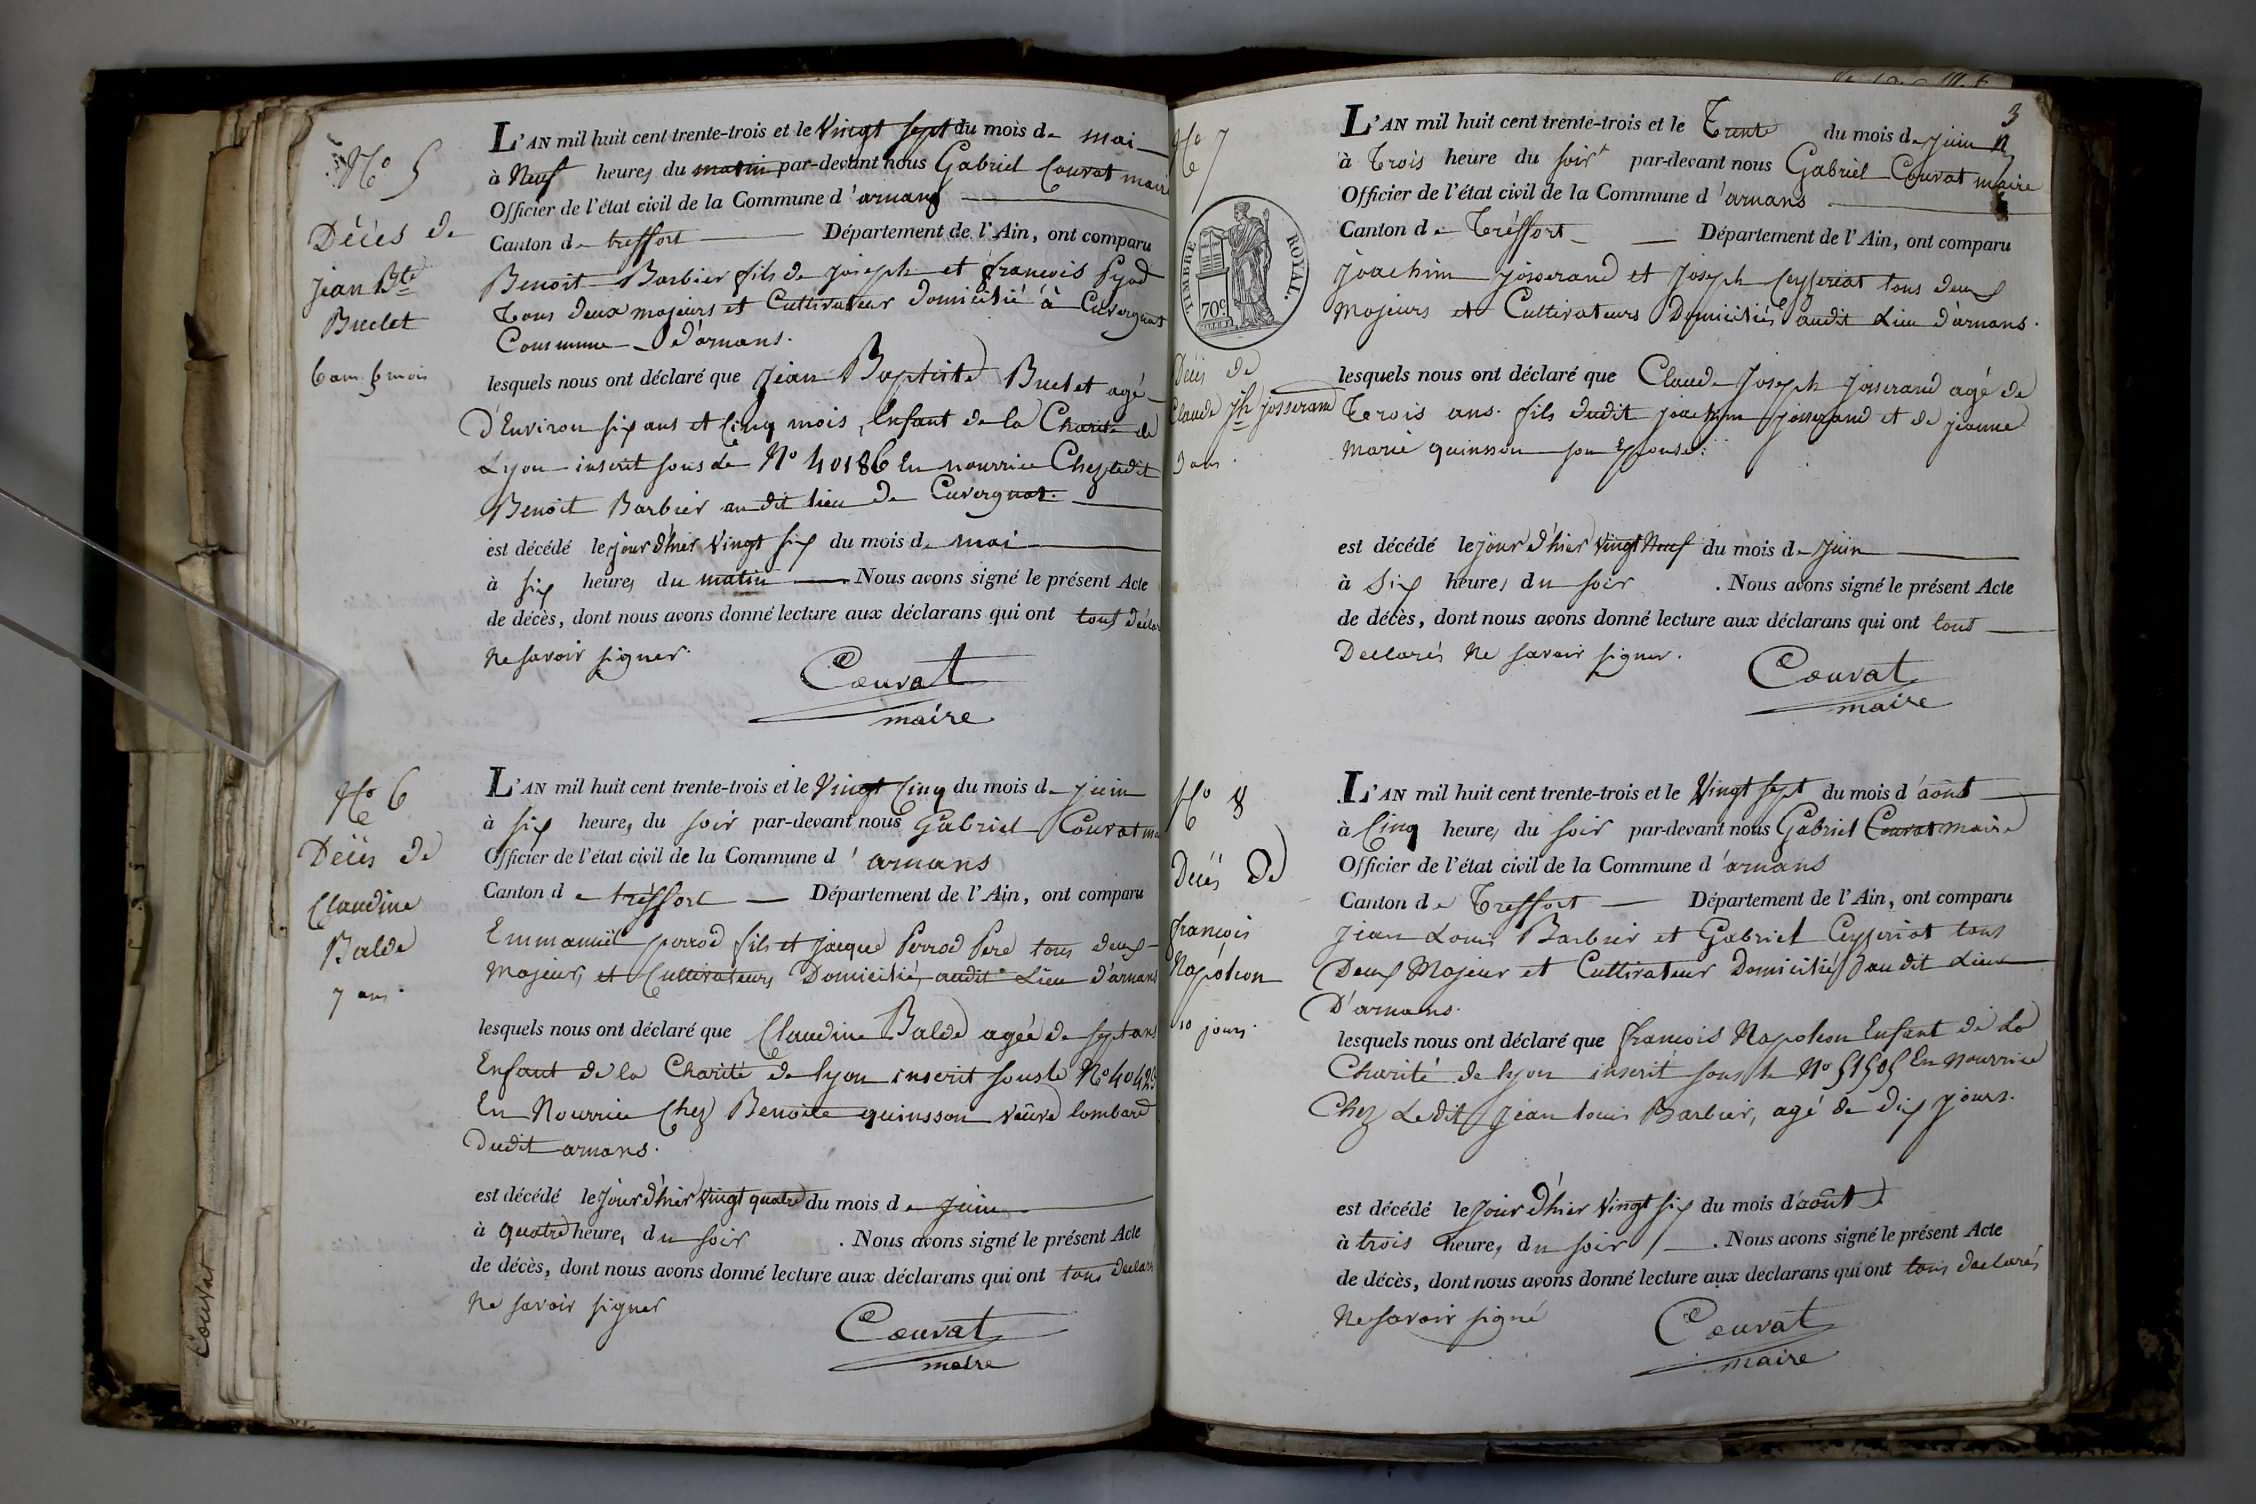 No 5
Décès de
jean Bte
Buclet
6 ans 5 mois
L'AN mil huit cent trente-trois et le Vingt sept du mois de mai
à Neuf heures du matin par-devant nous Gabriel Couvat maire
Officier de l'état civil de la Commune d'arnans
Canton de treffort Département de l'Ain, ont comparu
Benoit Barbier fils de joseph et francois
Tous deux majeurs et Cultivateur domicilié à Cuvergnat
Commune d'arnans.
lesquels nous ont déclaré que jean Baptiste Buclet agé
D'Environ six ans et Cinq mois, Enfant de la Charité de
Lyon inscrit sous Le No 40186 En nourrice Chez ledit
Benoit Barbier audit lieu de Cuvergnat.
est décédé le jour d'hier Vingt six du mois de mai
à six heures du matin Nous avons signé le présent Acte
de décès, dont nous avons donné lecture aux déclarans qui ont tous
Ne savoir signer.
Couvat
maire
No 6
Décès de
Claudine
Balde
7 ans.
L'AN mil huit cent trente-trois et le Vingt Cinq du mois de juin
à six heures du soir par-devant nous Gabriel Couvat
Officier de l'état civil de la Commune d'arnans
Canton de treffort Département de l'Ain, ont comparu
Emmanuel perrod fils et jacque Perrod Pere tous deux
Majeurs et Cultivateurs Domiciliés audit Lieu d'arnans
lesquels nous ont déclaré que Claudine Balde agée de sept ans
Enfant de la Charité de lyon inscrit sous le No
En Nourrice Chez Benoite quinsson veuve lombard
Dudit arnans.
est décédé le jour d'hier Vingt quatre du mois de juin
à quatre heures du soir . Nous avons signé le présent Acte
de décès, dont nous avons donné lecture aux déclarans qui ont tous
Ne savoir signer
Couvat
maire
Couvat
3
No 7
TIMBRE ROYAL.
70c
Décès de
Claude Jh josserand
3 ans.
L'AN mil huit cent trente-trois et le Trente du mois de juin
à Trois heure du soir par-devant nous Gabriel Couvat maire
Officier de l'état civil de la Commune d'arnans
Canton de Tréffort Département de l'Ain, ont comparu
joachim josserand et joseph Ceyseriat tous deux
Majeurs et Cultivateurs Domiciliés audit Lieu d'arnans.
lesquels nous ont déclaré que Claude Joseph josserand agé de
Trois ans. fils dudit joachim josserand et de jeanne
marie quinsson son Epouse.
est décédé le jour d'hier vingt Neuf du mois de juin
à Six heures du soir . Nous avons signé le présent Acte
de décès, dont nous avons donné lecture aux déclarans qui ont tous
Declarés Ne savoir signer.
Couvat
maire
No 8
Décès De
francois
Napoleon
10 jours.
L'AN mil huit cent trente-trois et le Vingt sept du mois d'août
à Cinq heures du soir par-devant nous Gabriel Couvat maire
Officier de l'état civil de la Commune d'arnans
Canton de Treffort Département de l'Ain, ont comparu
jean Louis Barbier et Gabriel Ceyseriat tous
Deux Majeur et Cultivateur Domiciliés audit Lieu
D'arnans.
lesquels nous ont déclaré que francois Napoleon Enfant de La
Charité de lyon inscrit sous le No 51505 En Nourrice
Chez Ledit jean louis Barbier, agé de dix jours.
est décédé le jour d'hier Vingt six du mois d'août
à trois heures du soir . Nous avons signé le présent Acte
de décès, dont nous avons donné lecture aux déclarans qui ont tous declarés
Ne savoir signé
Couvat
maire